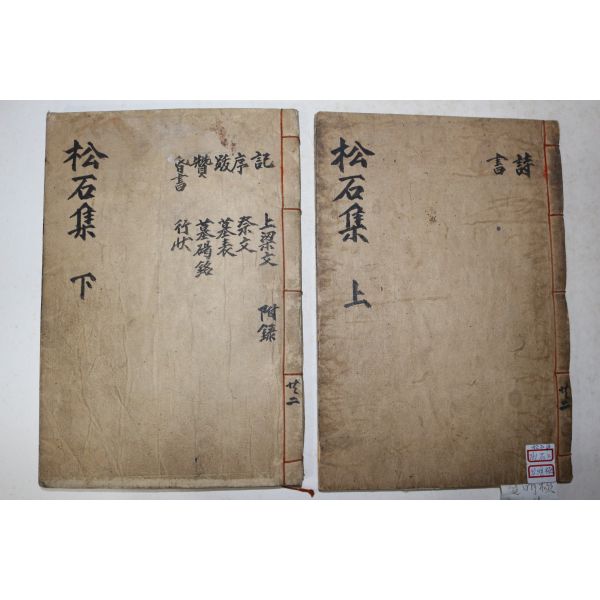 松石集 上
詩
書
共二
松石集 下
記
序
跋
贊
昏書
上梁文
祭文
墓表
墓碣銘
行狀
附錄
共二